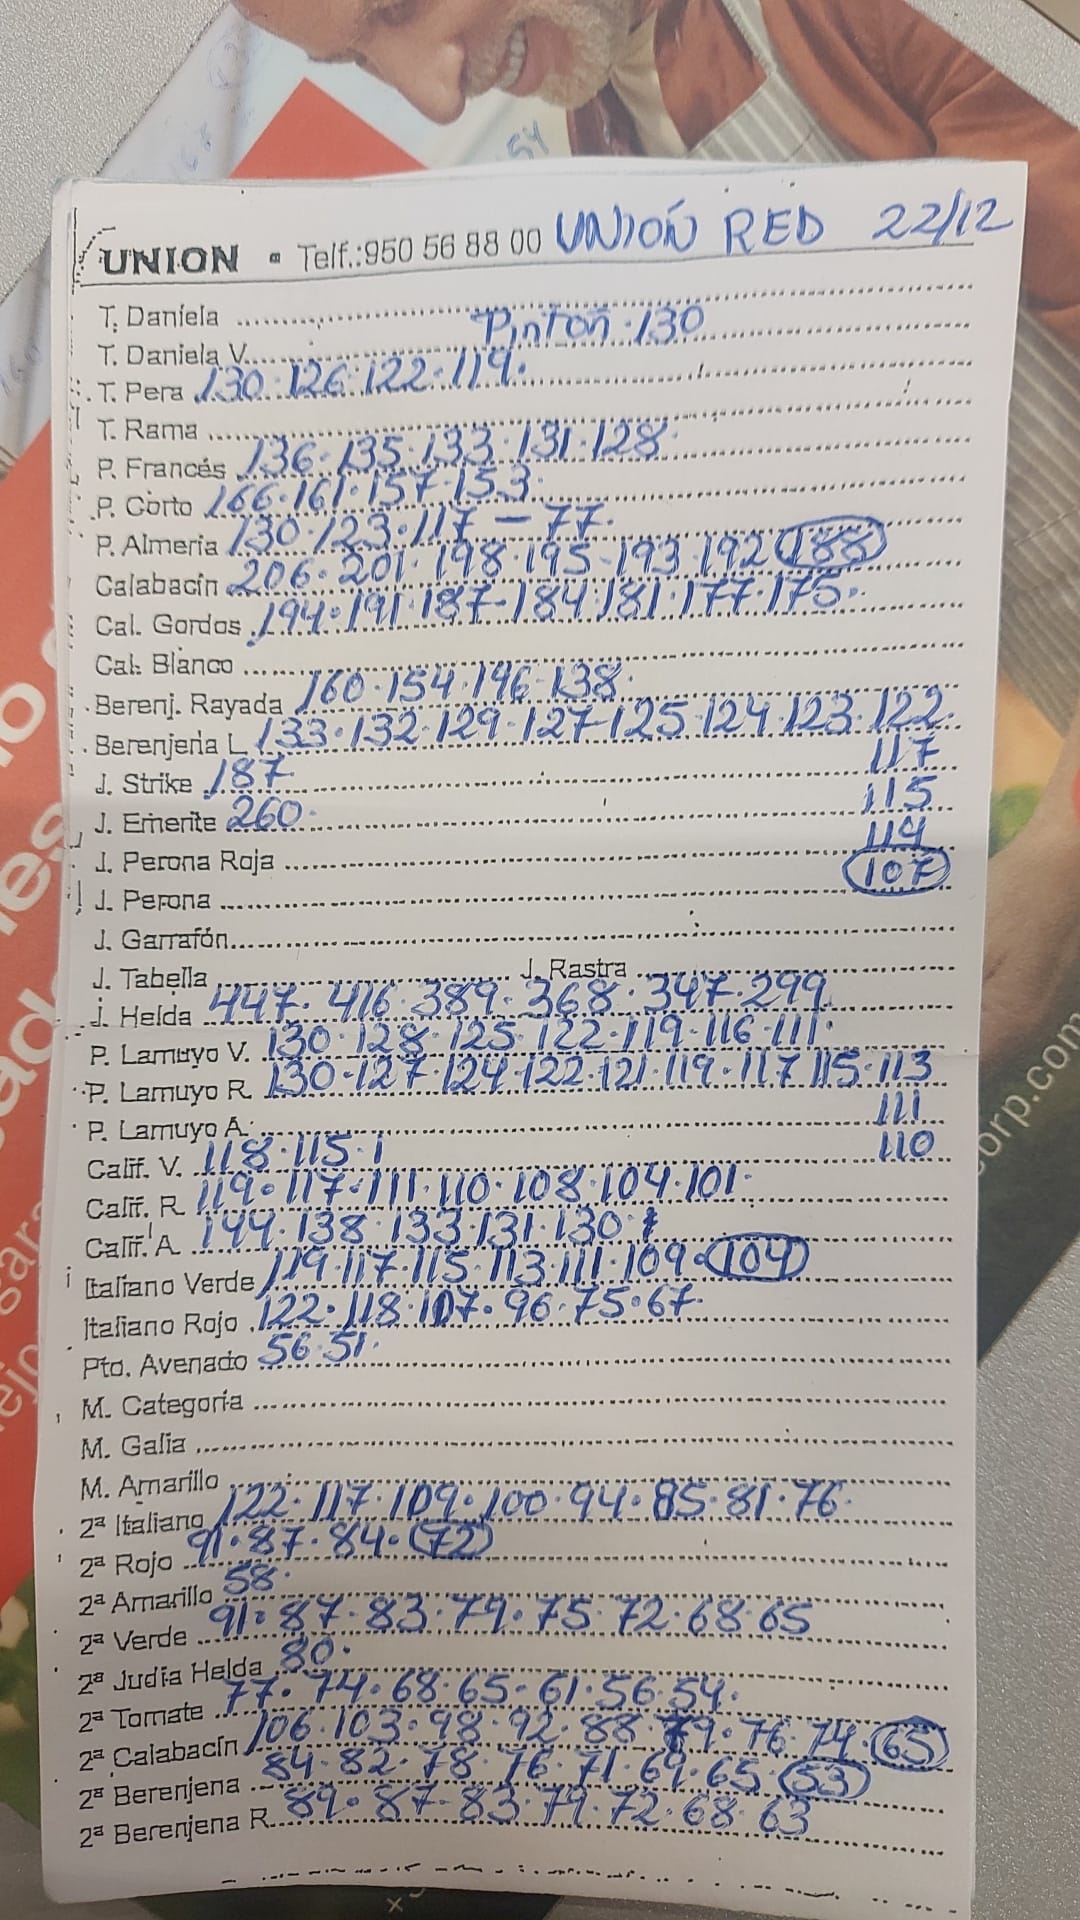 UNION - Telf.:950 56 88 00 UNIÓN RED 22/12
T. Daniela
T. Daniela V. Pinton 130
T. Pera 130.126.122.119.
T. Rama
P. Francés 136.135.133.131.128.
P. Corto 166.161.157.153.
P. Almeria 130.123.117-77.
Calabacín 206.201.198.195-193.192 188
Cal. Gordos 194.191.187-184.181.177.175.
Cal. Blanco
Berenj. Rayada 160.154.146.138.
Berenjena L 133.132.129.127-125.124.123.122.
J. Strike 187 117
J. Emerite 260. 115
J. Perona Roja 114
J. Perona 107
J. Garrafón
J. Tabella J. Rastra
J. Helda 447.416.389.368.347.299.
P. Lamuyo V. 130.128.125.122.119.116.111.
P. Lamuyo R. 130.127.124.122.121.119.117.115.113
P. Lamuyo A. 111
Calif. V. 118.115. 110
Calif. R. 119.117.111.110.108.104.101.
Calif. A. 144.138.133.131.130.
Italiano Verde 119.117.115.113.111.109.104
Italiano Rojo 122.118.107.96.75.67.
Pto. Avenado 56.51.
M. Categoria
M. Galia
M. Amarillo
2ª Italiano 122.117.109.100.94.85.81.76.
2ª Rojo 91.87.84.72
2ª Amarillo 58.
2ª Verde 91.87.83.79.75.72.68.65
2ª Judia Helda 80.
2ª Tomate 77.74.68.65.61.56.54.
2ª Calabacín 106.103.98.92.88.79.76.74.65
2ª Berenjena 84.82.78.76.71.69.65.53
2ª Berenjena R. 89.87-83.79.72.68.63
orp.com